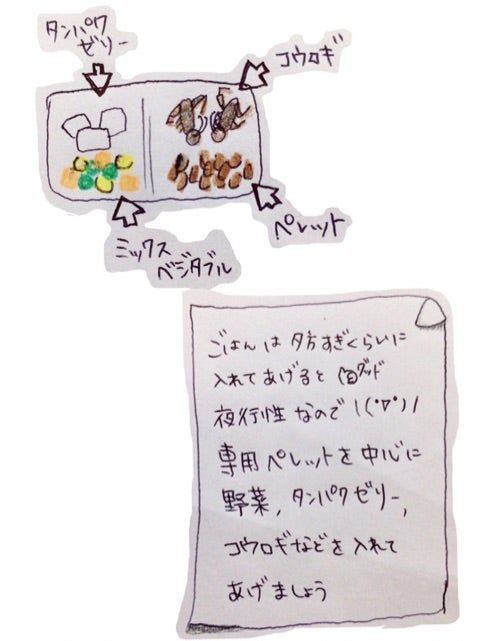 タンパク
ゼリー
コウロギ
ペレット
ミックス
ベジタブル
ごはんは夕方すぎくらいに
入れてあげると グッド
夜行性なので\(°∇°)/
専用ペレットを中心に
野菜,タンパクゼリー,
コウロギなどを入れて
あげましょう